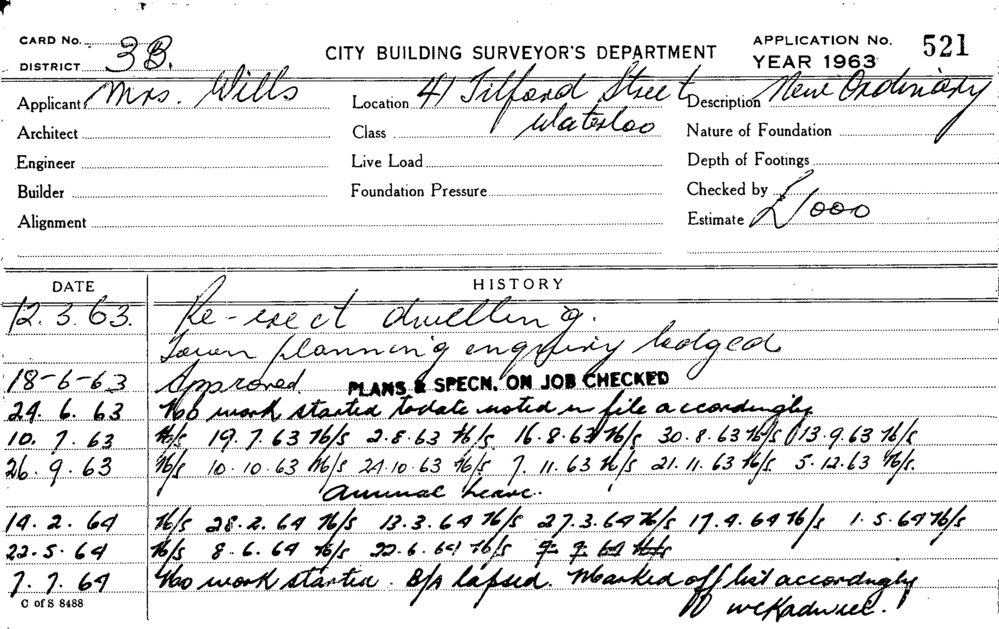 CARD No. CITY BUILDING SURVEYOR'S DEPARTMENT APPLICATION No. 521
DISTRICT 3B. YEAR 1963
Applicant Mrs. Wills Location 41 Tilford Street Description New Ordinary
Architect Class Waterloo Nature of Foundation
Engineer Live Load Depth of Footings
Builder Foundation Pressure Checked by
Alignment Estimate £1000
DATE HISTORY
12.3.63. Re-erect dwelling.
Town planning enquiry lodged
18-6-63 Approved PLANS & SPECN. ON JOB CHECKED
24. 6. 63 No work started todate noted in file accordingly
10. 7. 63 N/S 19.7.63 N/S 2.8.63 N/S 16.8.63 N/S 30.8.63 N/S 13.9.63 N/S
26. 9. 63 N/S 10.10.63 N/S 24.10.63 N/S 7.11.63 N/S 21.11.63 N/S 5.12.63 N/S.
Annual Leave.
14. 2. 64 N/S 28.2.64 N/S 13.3.64 N/S 27.3.64 N/S 17.4.64 N/S 1.5.64 N/S
22.5.64 N/S 8.6.64 N/S 22.6.64 N/S
7. 7. 64 No work started. B/A lapsed. Marked off list accordingly
C of S 8488